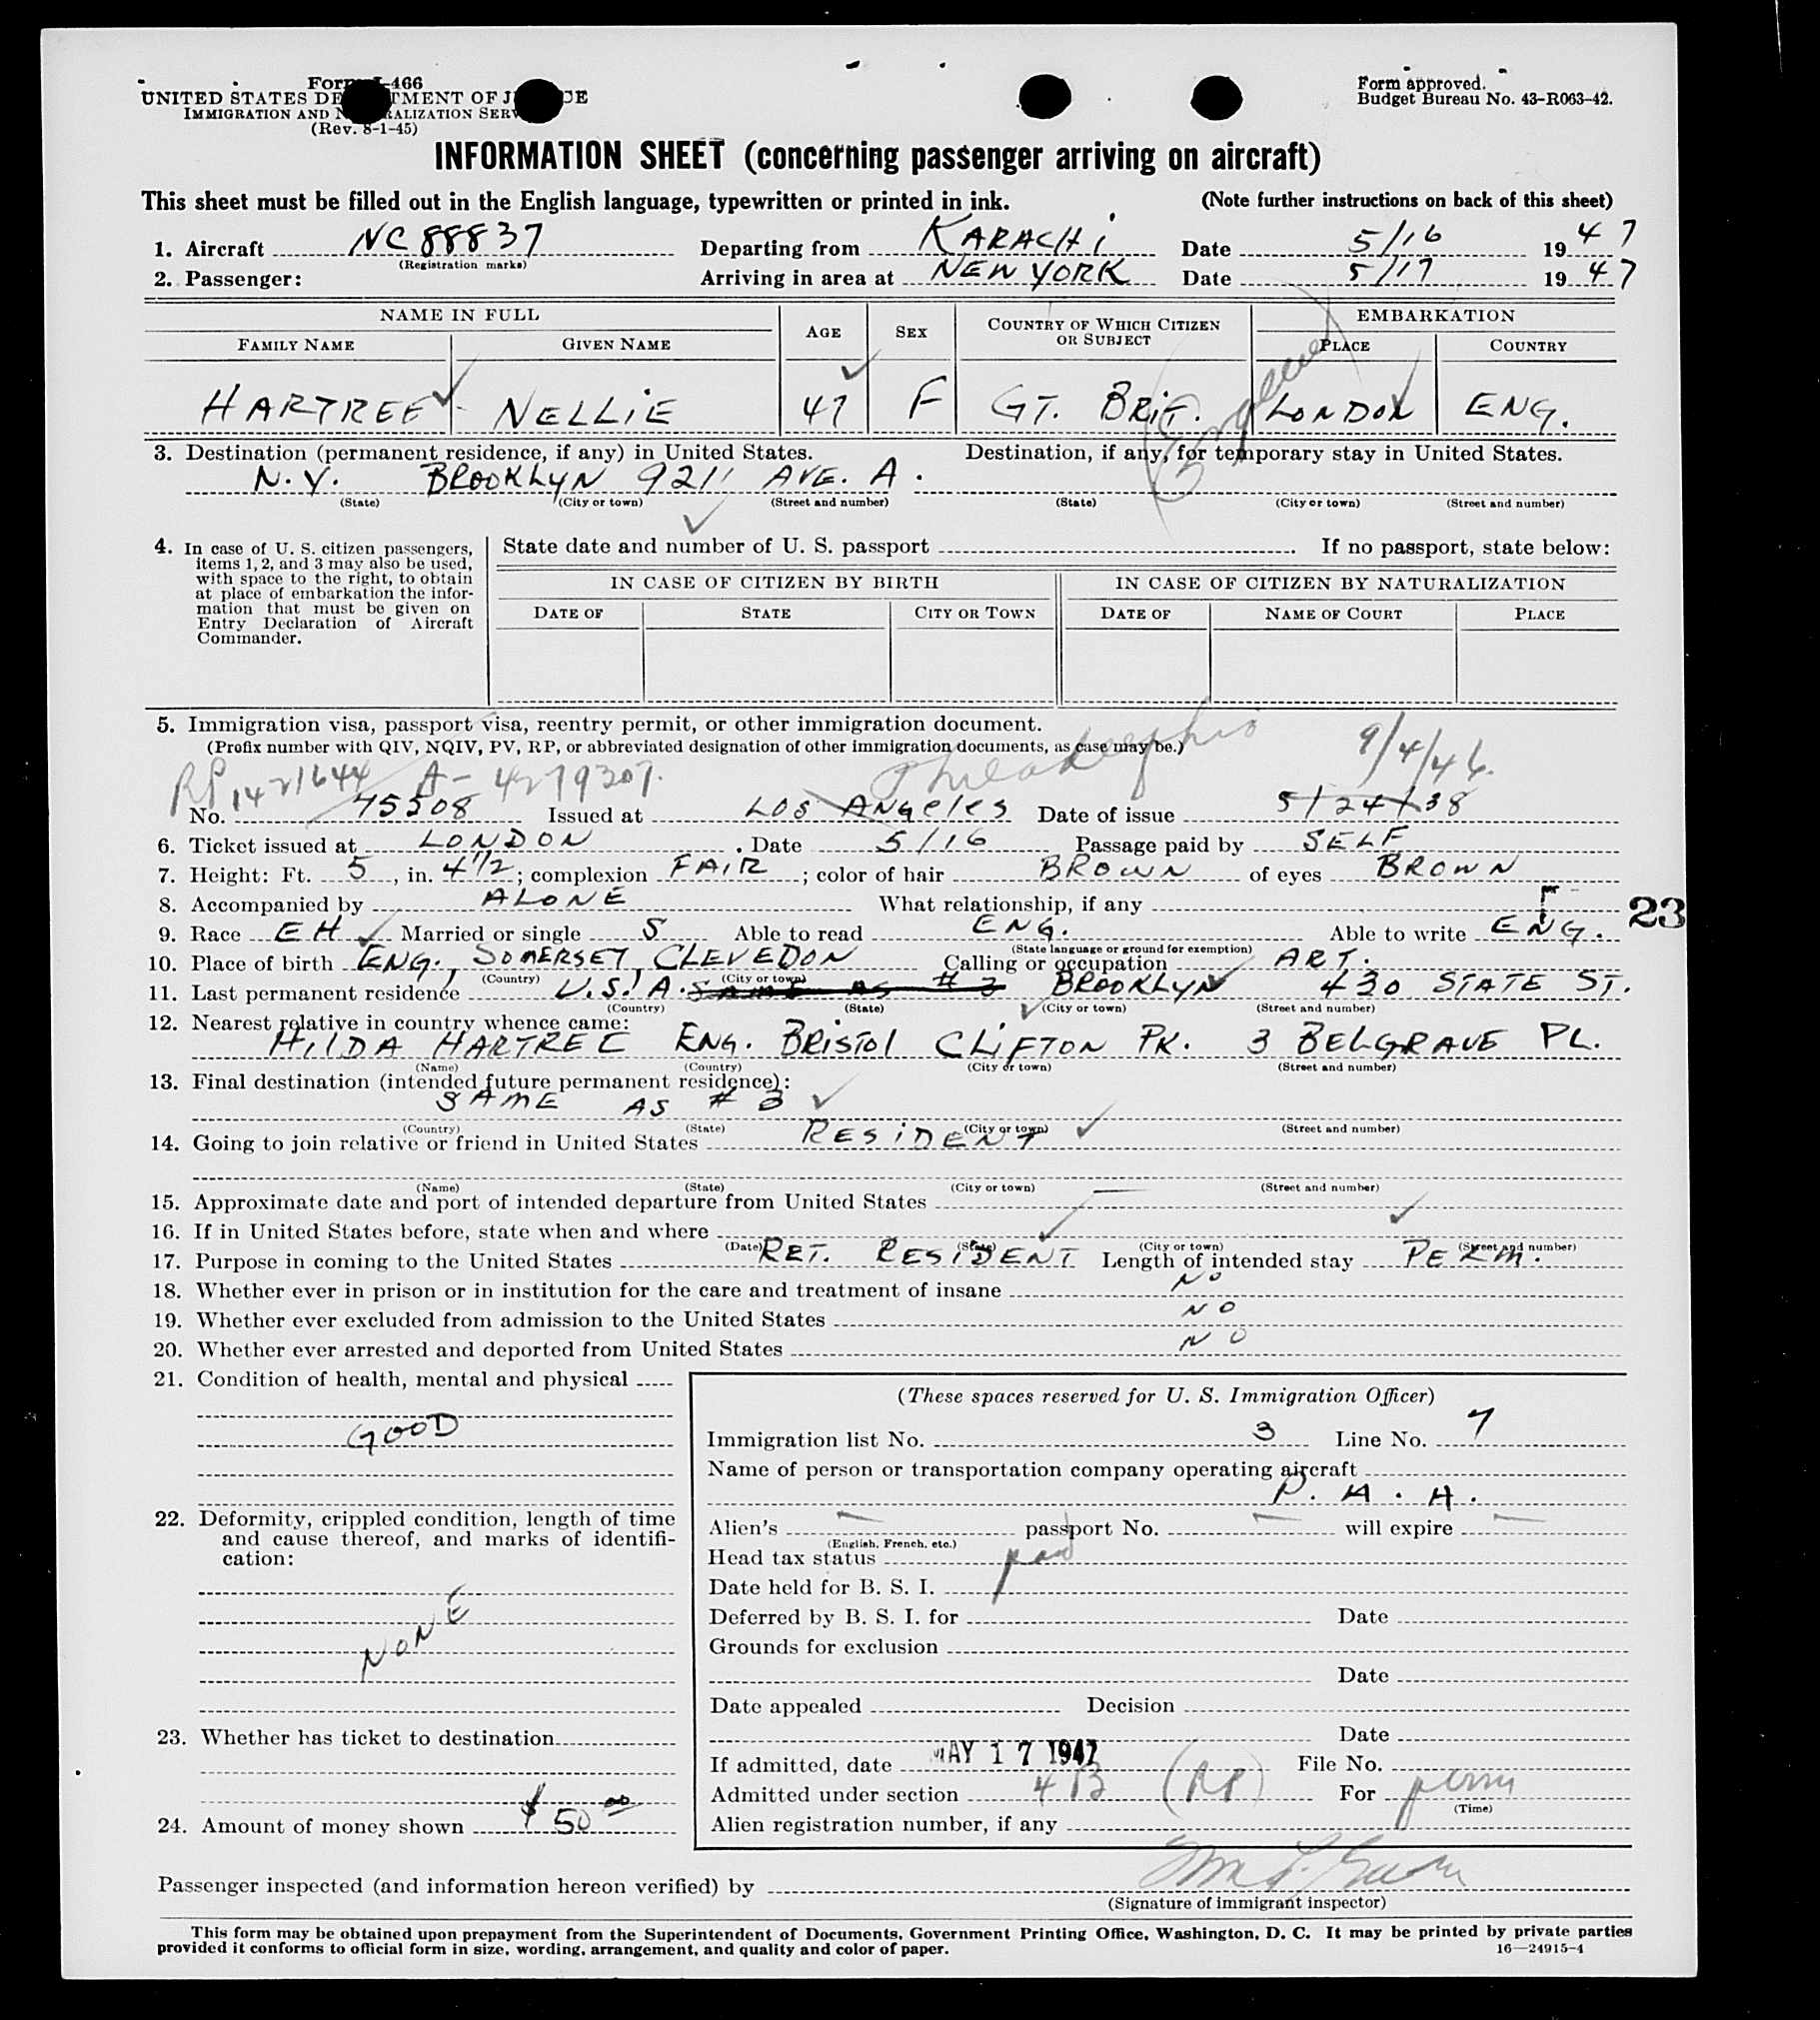 Form I-466
UNITED STATES DE TMENT OF J CE
IMMIGRATION AND N RALIZATION SERV
(Rev. 8-1-45)
Form approved.
Budget Bureau No. 43-R063-42.
INFORMATION SHEET (concerning passenger arriving on aircraft)
This sheet must be filled out in the English language, typewritten or printed in ink. (Note further instructions on back of this sheet)
1. Aircraft NC 88837 Departing from KARACHi Date 5/16 1947
(Registration marks)
2. Passenger: Arriving in area at NEW YORK Date 5/17 1947
NAME IN FULL AGE SEX COUNTRY OF WHICH CITIZEN OR SUBJECT EMBARKATION
FAMILY NAME GIVEN NAME PLACE COUNTRY
HARTREE NELLiE 47 F GT. BRiT. LONDON ENG.
(England)
3. Destination (permanent residence, if any) in United States. Destination, if any, for temporary stay in United States.
N.Y. BROOKLYN 9211 AVE. A.
(State) (City or town) (Street and number) (State) (City or town) (Street and number)
4. In case of U. S. citizen passengers, items 1, 2, and 3 may also be used, with space to the right, to obtain at place of embarkation the information that must be given on Entry Declaration of Aircraft Commander.
State date and number of U. S. passport . If no passport, state below:
IN CASE OF CITIZEN BY BIRTH IN CASE OF CITIZEN BY NATURALIZATION
DATE OF STATE CITY OR TOWN DATE OF NAME OF COURT PLACE
5. Immigration visa, passport visa, reentry permit, or other immigration document.
(Prefix number with QIV, NQIV, PV, RP, or abbreviated designation of other immigration documents, as case may be.)
RP 1421644 A-4279307. Philadelphia 9/4/46.
No. 45508 Issued at LOS ANGELES Date of issue 5/24/38
6. Ticket issued at LONDON . Date 5/16 Passage paid by SELF
7. Height: Ft. 5, in. 4 1/2; complexion FAIR; color of hair BROWN of eyes BROWN
8. Accompanied by ALONE What relationship, if any
23
9. Race EH Married or single S Able to read ENG. Able to write ENG.
(State language or ground for exemption)
10. Place of birth ENG., SOMERSET, CLEVEDON Calling or occupation ART.
(Country) (City or town)
11. Last permanent residence U.S.A. SAME AS #3 BROOKLYN 430 STATE ST.
(Country) (State) (City or town) (Street and number)
12. Nearest relative in country whence came:
HILDA HARTREE ENG. BRISTOl CLiFTON PK. 3 BELGRAVE PL.
(Name) (Country) (City or town) (Street and number)
13. Final destination (intended future permanent residence):
SAME AS #3
(Country) (State) (City or town) (Street and number)
14. Going to join relative or friend in United States RESiDENT
(Name) (State) (City or town) (Street and number)
15. Approximate date and port of intended departure from United States
16. If in United States before, state when and where
(Date) (State) (City or town) (Street and number)
17. Purpose in coming to the United States RET. RESIDENT Length of intended stay PERM.
18. Whether ever in prison or in institution for the care and treatment of insane NO
19. Whether ever excluded from admission to the United States NO
20. Whether ever arrested and deported from United States NO
21. Condition of health, mental and physical
GOOD
22. Deformity, crippled condition, length of time and cause thereof, and marks of identification:
NONE
23. Whether has ticket to destination
24. Amount of money shown $50.00
(These spaces reserved for U. S. Immigration Officer)
Immigration list No. 3 Line No. 7
Name of person or transportation company operating aircraft
P.A.A.
Alien's passport No. will expire
(English, French, etc.)
Head tax status paid
Date held for B. S. I.
Deferred by B. S. I. for Date
Grounds for exclusion
Date
Date appealed Decision
Date
If admitted, date MAY 17 1947 File No.
Admitted under section 4B (RP) For perm
(Time)
Alien registration number, if any
Passenger inspected (and information hereon verified) by
(Signature of immigrant inspector)
This form may be obtained upon prepayment from the Superintendent of Documents, Government Printing Office, Washington, D. C. It may be printed by private parties
provided it conforms to official form in size, wording, arrangement, and quality and color of paper. 16—24915-4